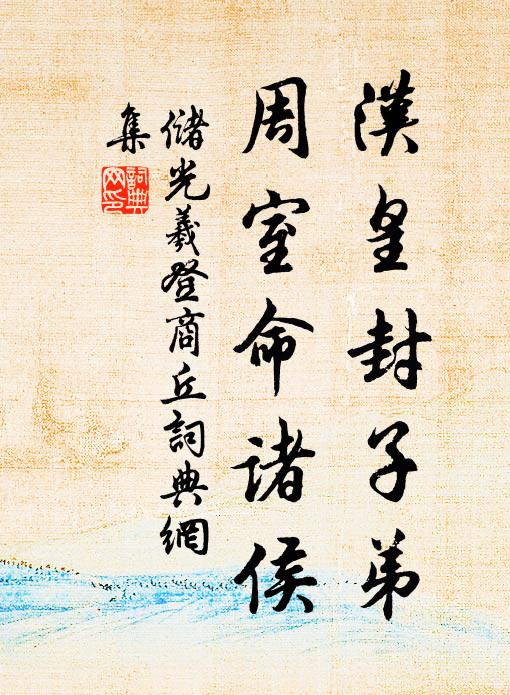 漢皇封子弟
周室命诸侯
儲光羲登商丘詞典網
集
詞典
网印